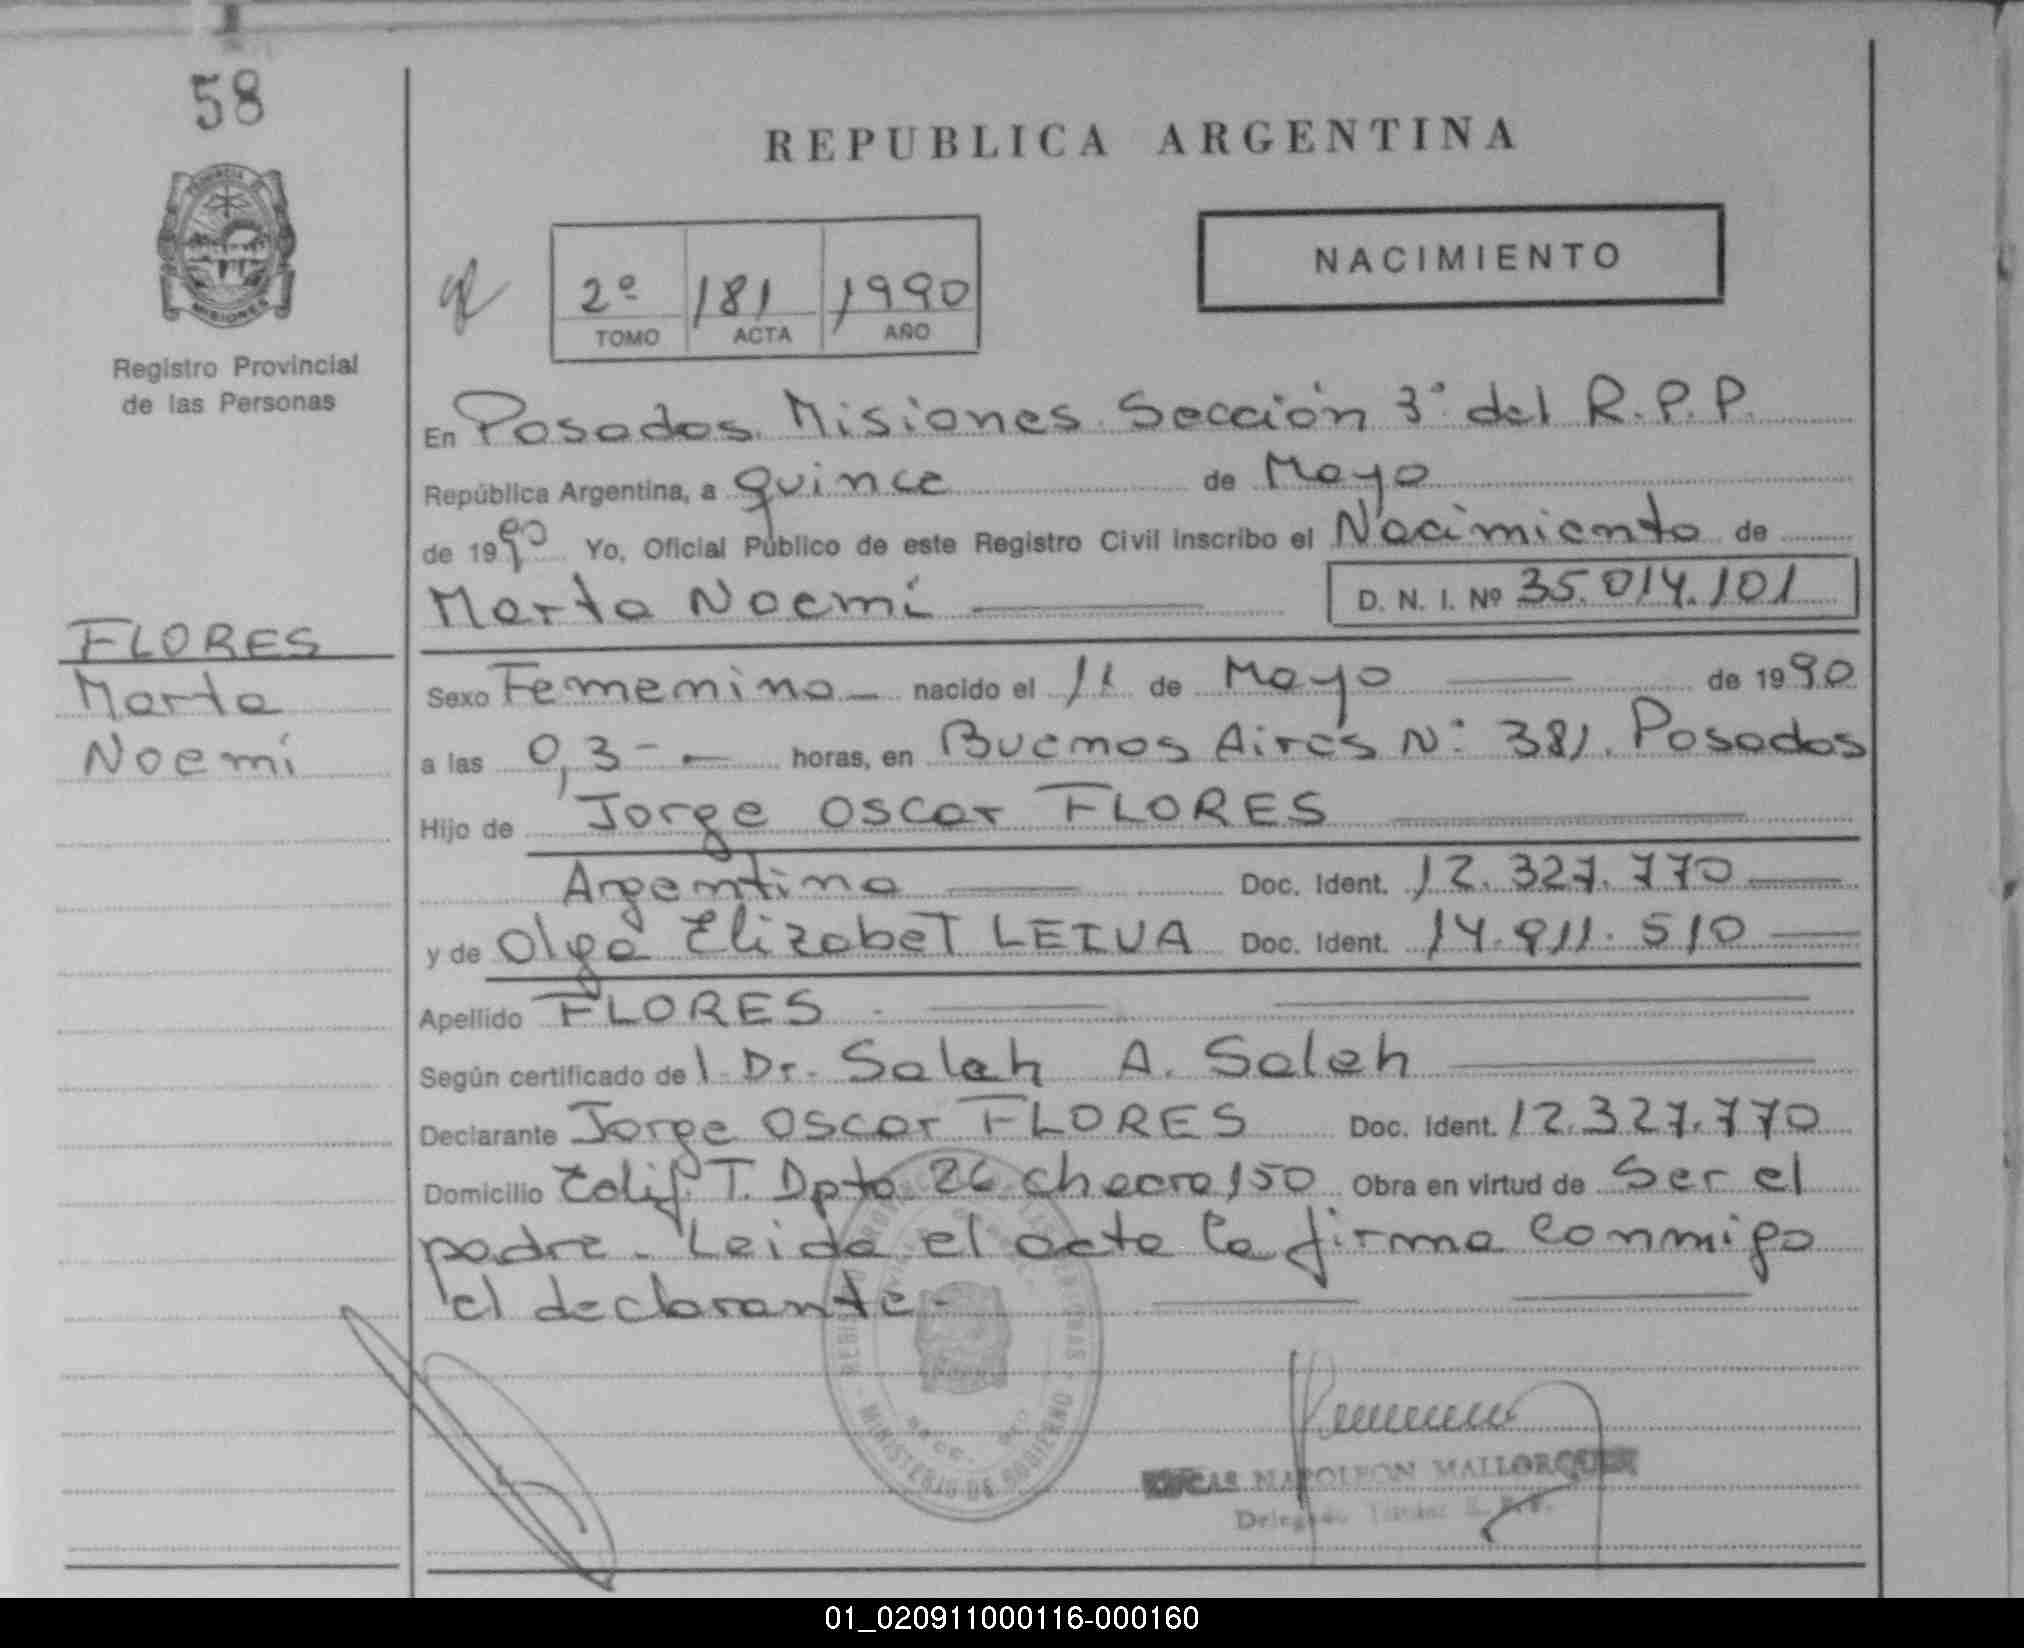 58
REPUBLICA ARGENTINA
NACIMIENTO
2º 181 1990
TOMO ACTA AÑO
PROVINCIA DE
MISIONES
Registro Provincial
de las Personas
En Posadas Misiones Sección 3ª del R.P.P.
República Argentina, a quince de Mayo
de 1990 Yo, Oficial Público de este Registro Civil inscribo el Nacimiento de
Marta Noemí D. N. I. Nº 35.014.101
FLORES
Marta
Noemí
Sexo Femenino nacido el 11 de Mayo de 1990
a las 0,3- horas, en Buenos Aires Nº 381. Posadas
Hijo de Jorge Oscar FLORES
Argentino Doc. Ident. 12.327.770
y de Olga Elizabet LEIVA Doc. Ident. 14.911.510
Apellido FLORES
Según certificado del Dr. Saleh A. Saleh
Declarante Jorge Oscar FLORES Doc. Ident. 12.327.770
Domicilio Edif. T. Dpto 26 chacra 150 Obra en virtud de Ser el
padre. Leida el acta la firma conmigo
el declarante.-
MINISTERIO DE GOBIERNO
NAPOLEON MALLORQUIN
Delegado
01_020911000116-000160